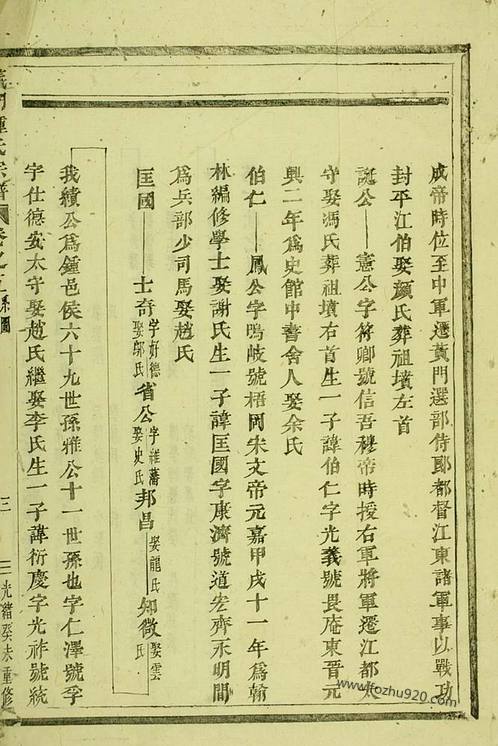 成帝時位至中軍遷黃門選部侍郎都督江東諸軍事以戰功
封平江伯娶顏氏葬祖墳左首
誕公——憲公字符卿號信吾穆帝時授右軍將軍遷江都太
守娶馮氏葬祖墳右首生一子諱伯仁字光義號畏庵東晉元
興二年爲史館中書舍人娶余氏
伯仁——鳳公字鳴岐號梧岡宋文帝元嘉甲戌十一年爲翰
林編修學士娶謝氏生一子諱匡國字康濟號道宏齊永明間
爲兵部少司馬娶趙氏
匡國——士奇字好德娶鄢氏省公字維藩娶史氏邦昌娶龍氏知徵娶雲氏
我績公爲鍾邑侯六十九世孫雅公十一世孫也字仁澤號季
字仕德安太守娶趙氏繼娶李氏生一子諱衍慶字光祚號統
義門鍾氏宗譜 卷之 系圖
三
光緒癸未重修
www.fozhu920.com